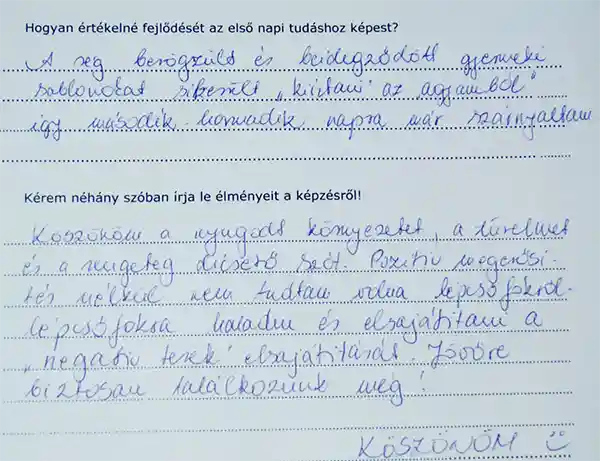 Hogyan értékelné fejlődését az első napi tudáshoz képest?
A rég berögzült és beidegződött gyermeki
sablonokat sikerült „kiirtani" az agyamból"
így második-harmadik napra már szárnyaltam
Kérem néhány szóban írja le élményeit a képzésről!
Köszönöm a nyugodt környezetet, a türelmet
és a rengeteg dicsérő szót. Pozitív megerősí-
tés nélkül nem tudtam volna lépcsőfokról-
lépcsőfokra haladni és elsajátítani a
„negatív terek" elsajátítását. Jövőre
biztosan találkozunk még!
KÖSZÖNÖM